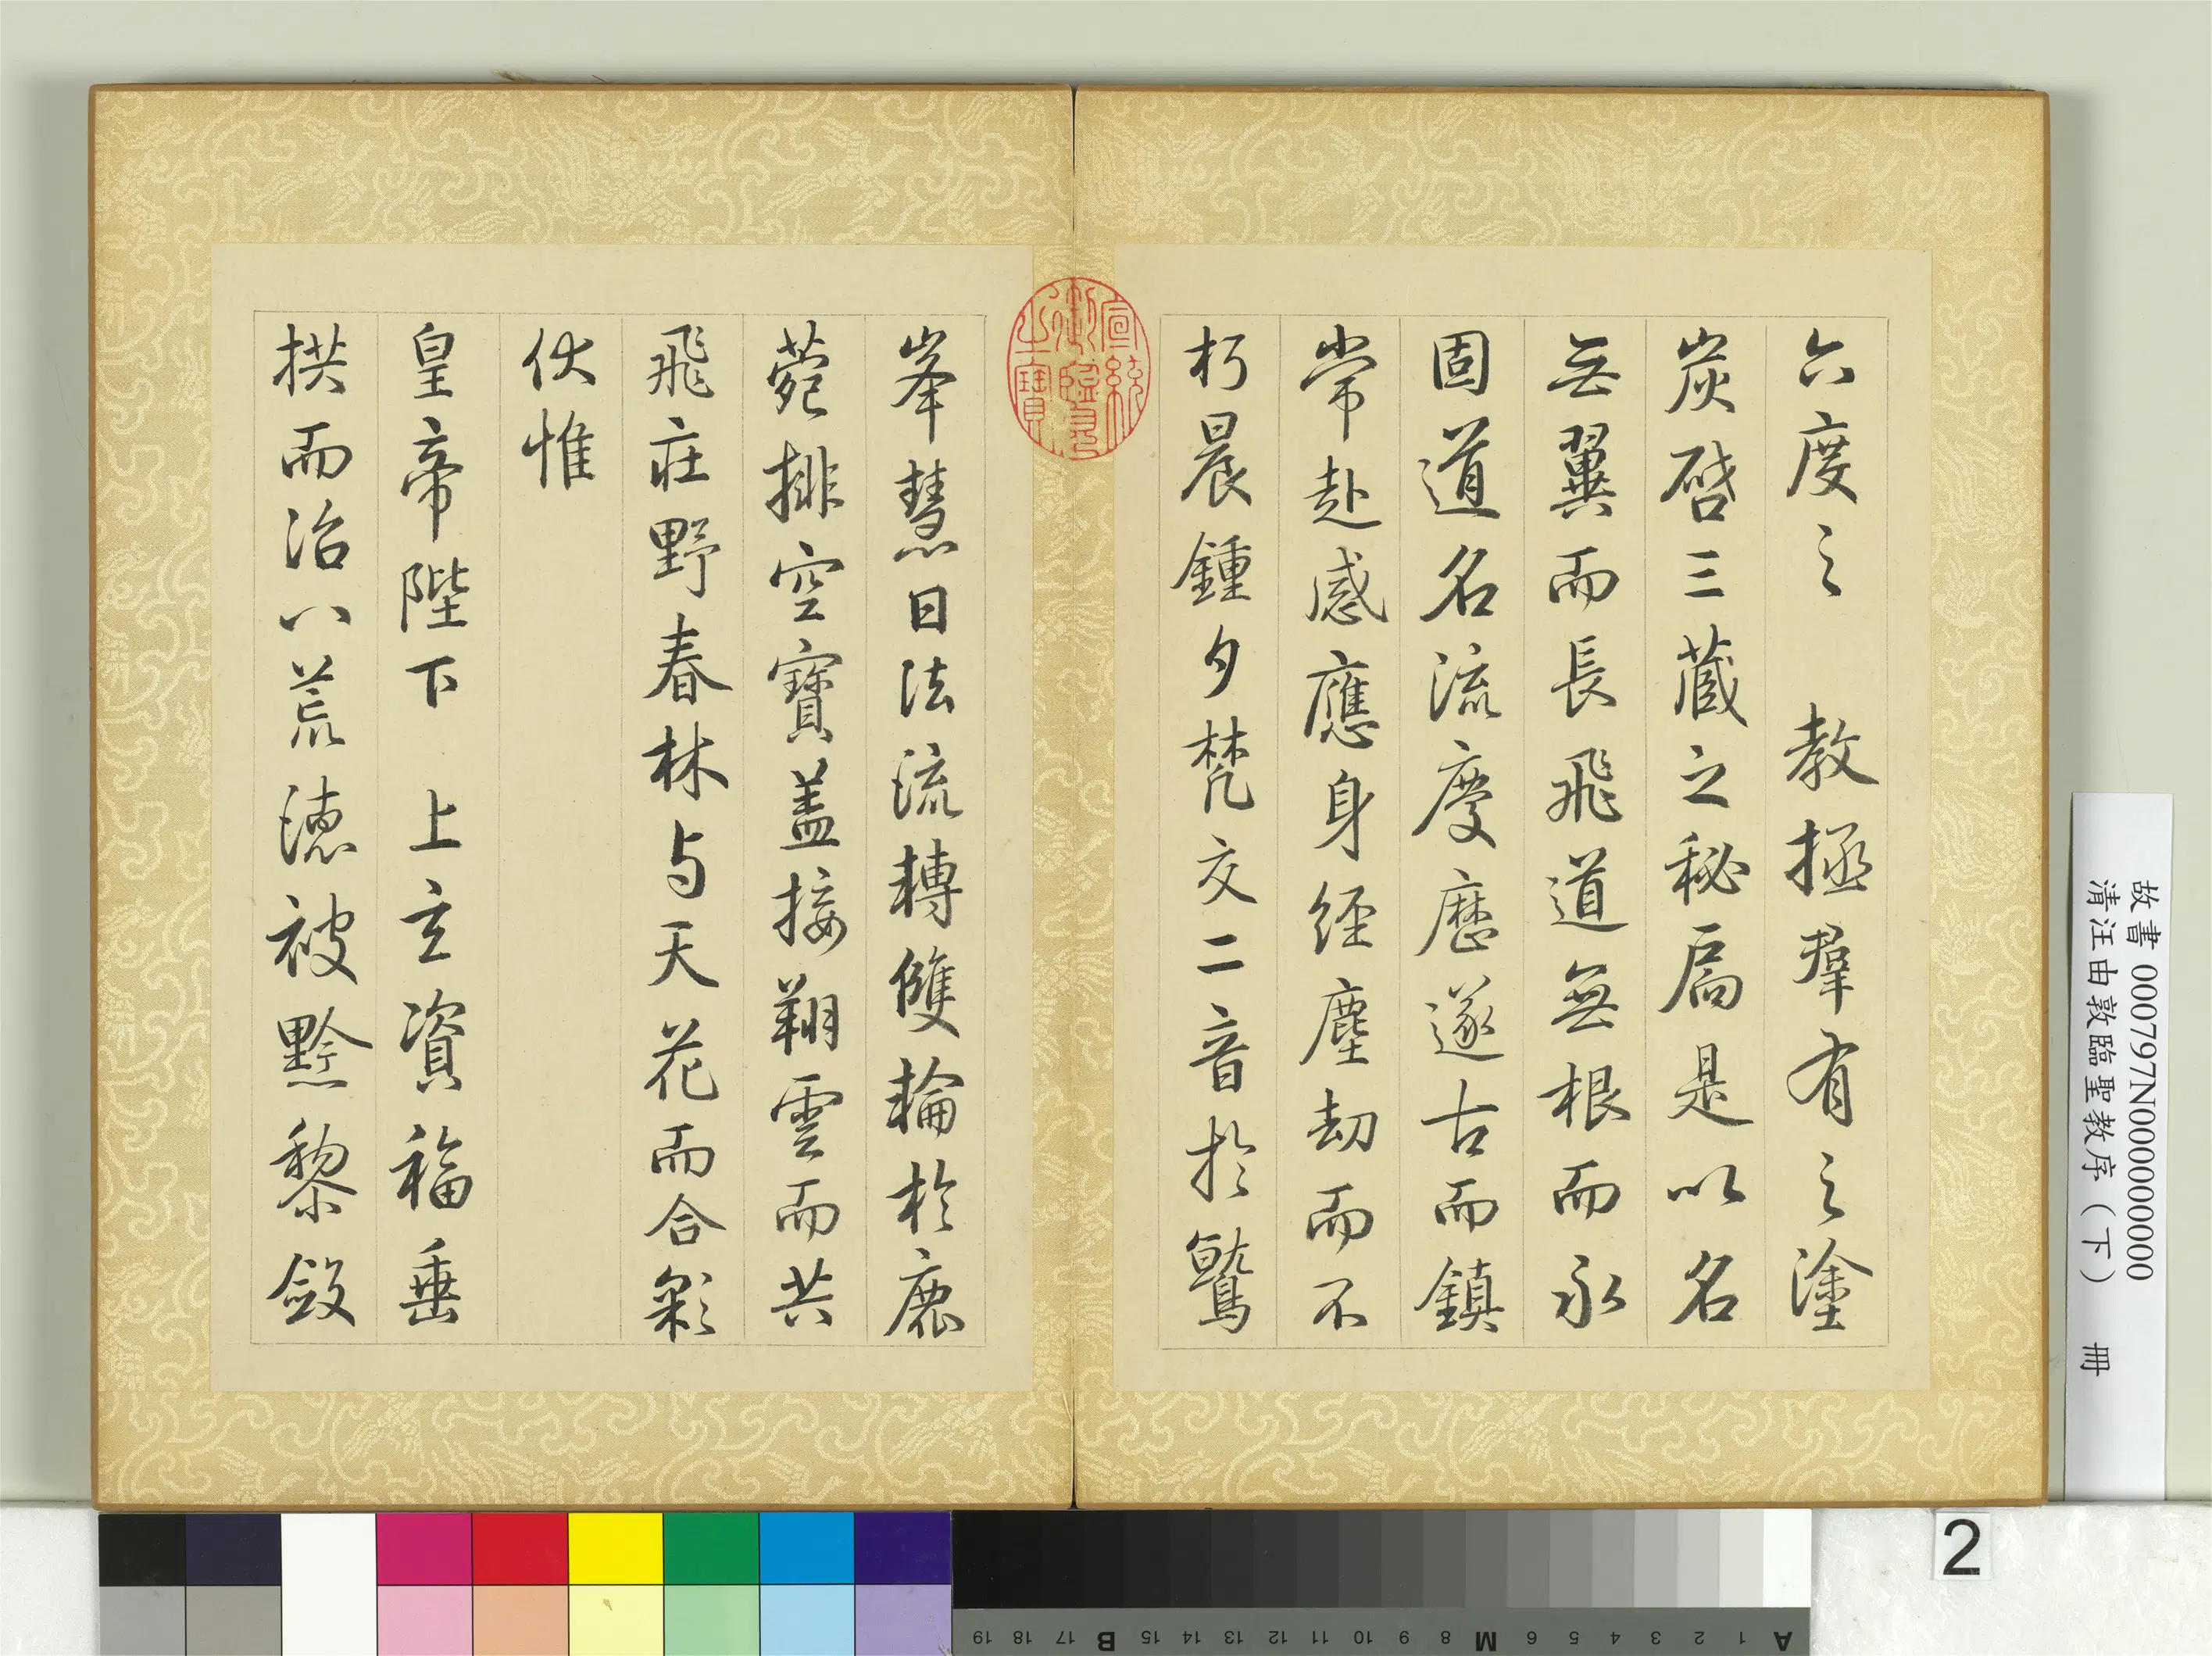 六度之　教拯羣有之塗
炭啓三藏之秘扃是以名
無翼而長飛道無根而永
固道名流慶歷遂古而鎮
常赴感應身經塵劫而不
朽晨鍾夕梵交二音於鷲
峯慧日法流轉雙輪於鹿
菀排空寶蓋接翔雲而共
飛莊野春林与天花而合彩
伏惟
皇帝陛下　上玄資福垂
拱而治八荒德被黔黎斂
宣統御覽之寶
故書 000797N000000000
清汪由敦臨聖教序（下）　冊
2
A 1 2 3 4 5 6 M 8 9 10 11 12 13 14 15 B 17 18 19